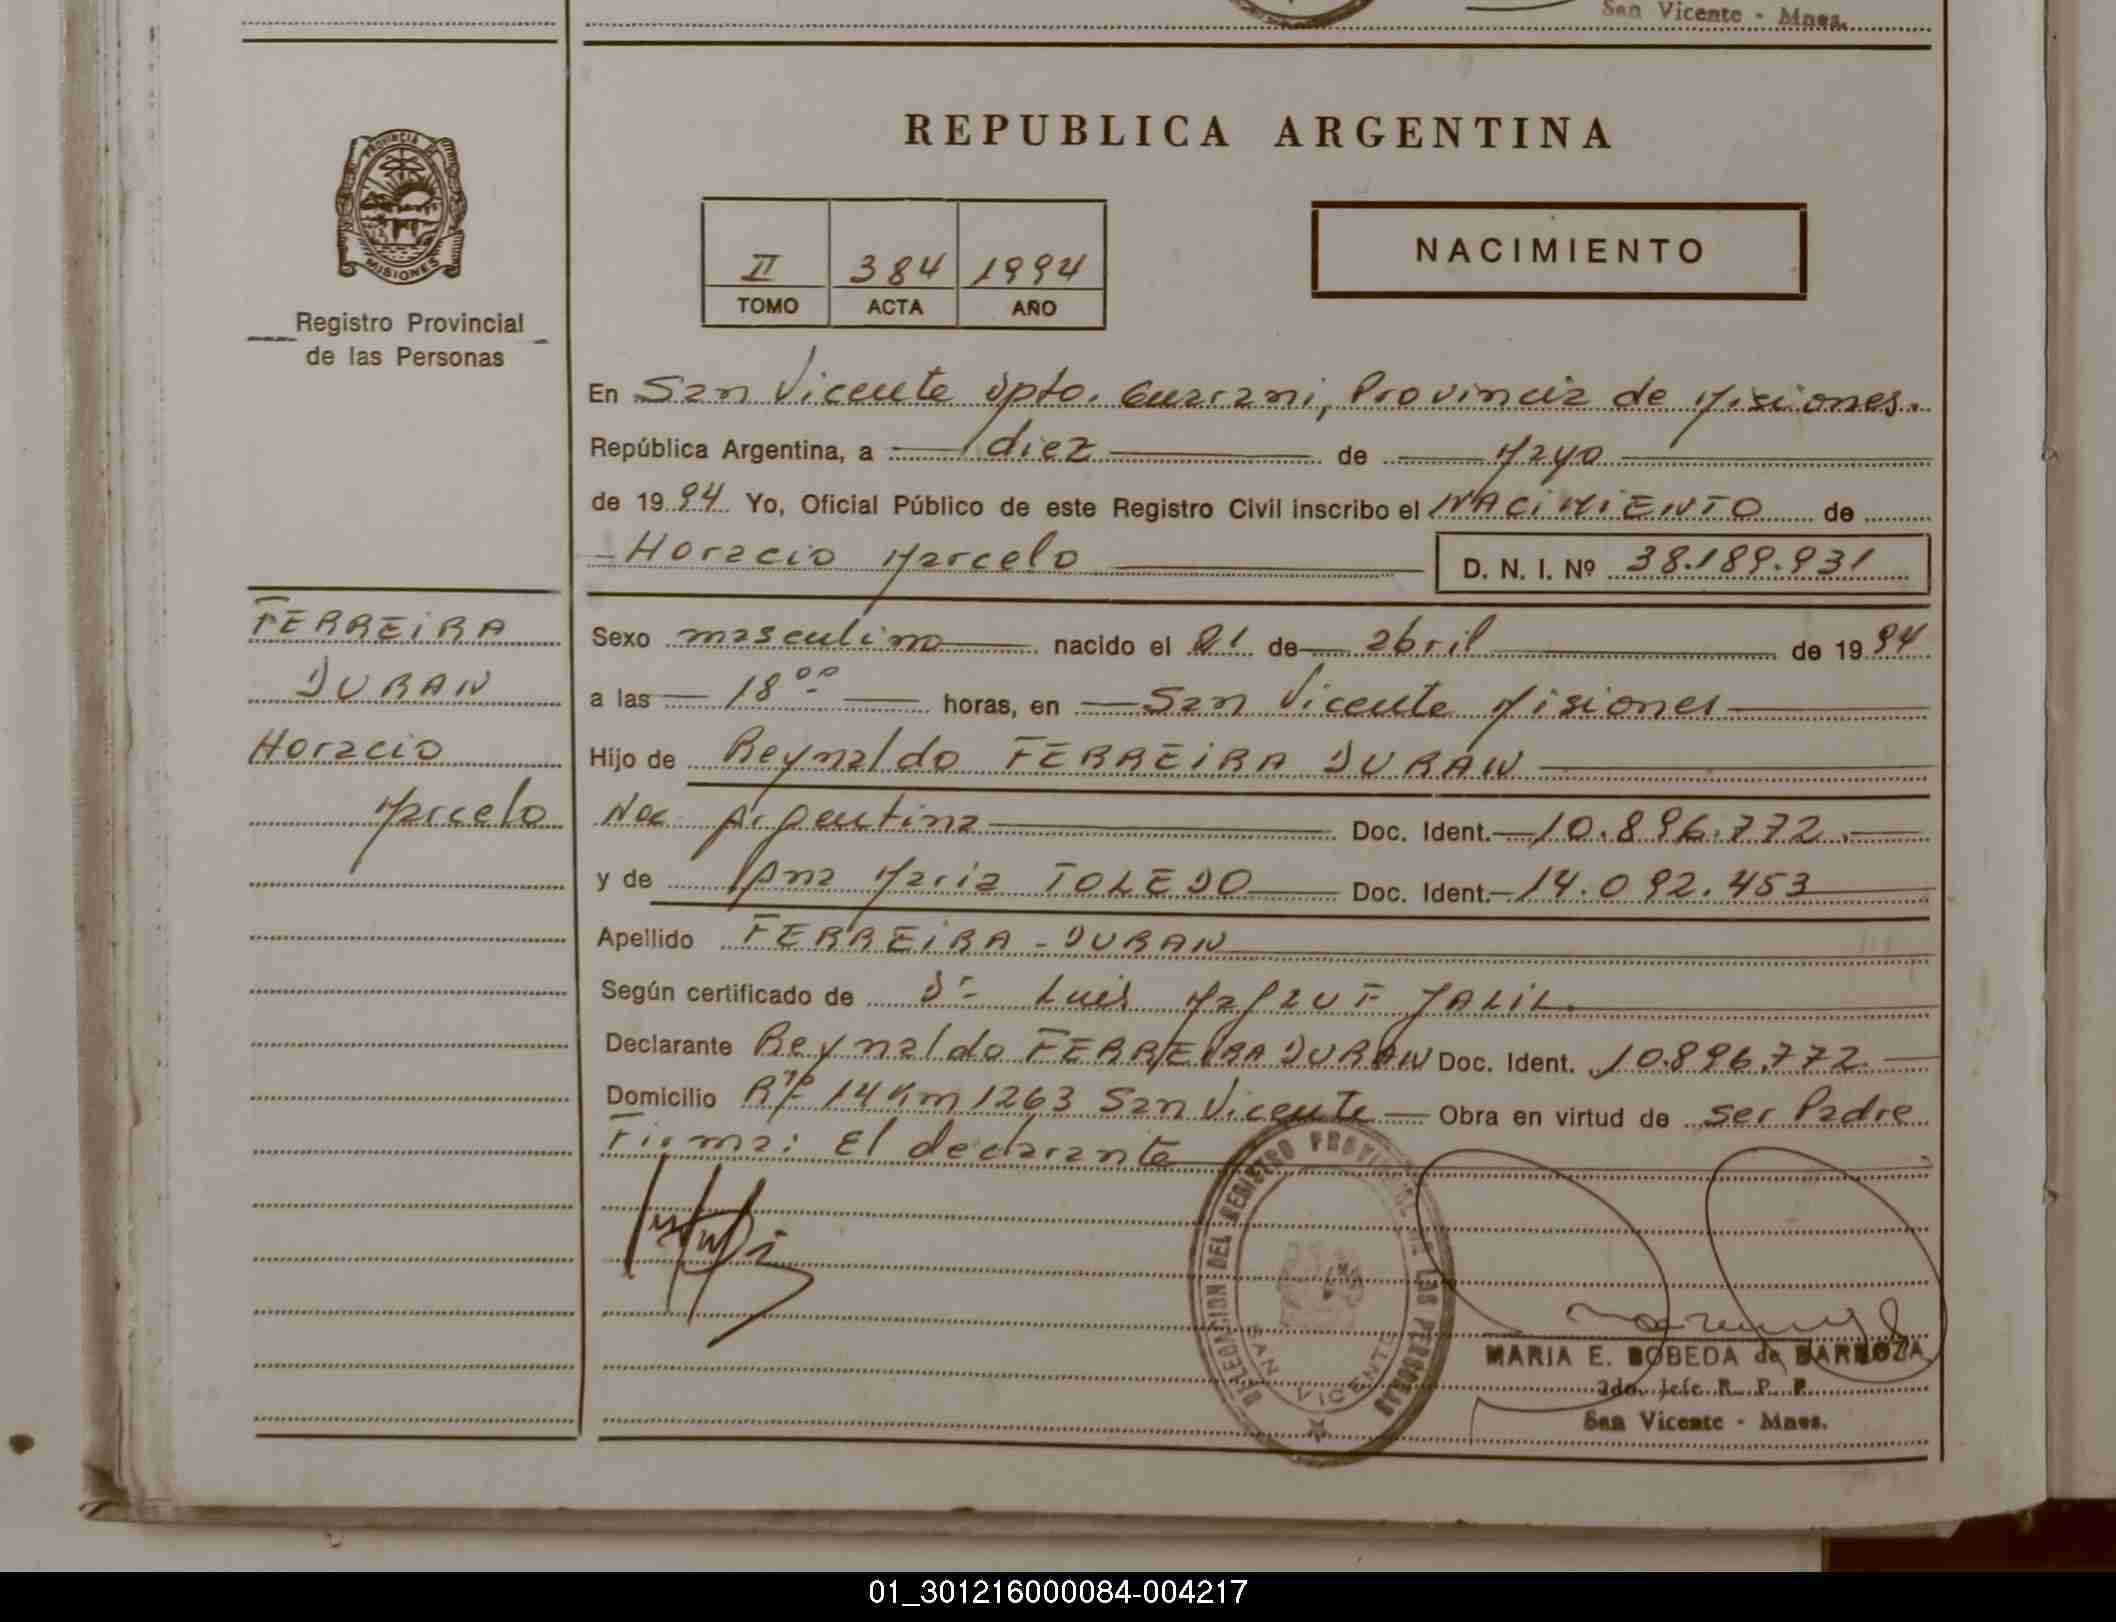 San Vicente - Mnes.
PROVINCIA DE
MISIONES
Registro Provincial
de las Personas
REPUBLICA ARGENTINA
II 384 1994
TOMO ACTA AÑO
NACIMIENTO
En San Vicente Dpto. Guarani, Provincia de Misiones.
República Argentina, a diez de Mayo
de 1994 Yo, Oficial Público de este Registro Civil inscribo el NACIMIENTO de
Horacio Marcelo D. N. I. Nº 38.189.931
FERREIRA
DURAN
Horacio
Marcelo
Sexo masculino nacido el 21 de abril de 1994
a las 18 00 horas, en San Vicente Misiones
Hijo de Reynaldo FERREIRA DURAN
Nac. Argentina Doc. Ident. 10.896.772.
y de Ana Maria TOLEDO Doc. Ident. 14.092.453
Apellido FERREIRA - DURAN
Según certificado de Dr Luis JALIL.
Declarante Reynaldo FERREIRA DURAN Doc. Ident. 10.896.772
Domicilio 14 Km 1263 San Vicente Obra en virtud de ser Padre
Firma: El declarante
DELEGACION DEL REGISTRO PROVINCIAL DE LAS PERSONAS
SAN VICENTE
MARIA E. BOBEDA de BARBOZA
2do. Jefe R. P. P.
San Vicente - Mnes.
01_301216000084-004217